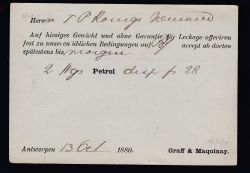 Herrn T P König Neuwied
Auf hiesiges Gewicht und ohne Garantie für Leckage offeriren
fest zu unsern üblichen Bedingungen auf accept ab dorten
spätestens bis morgen
2 Wgs Petrol disp f 28
Antwerpen 13 Oct 1880. Graff & Maquinay.